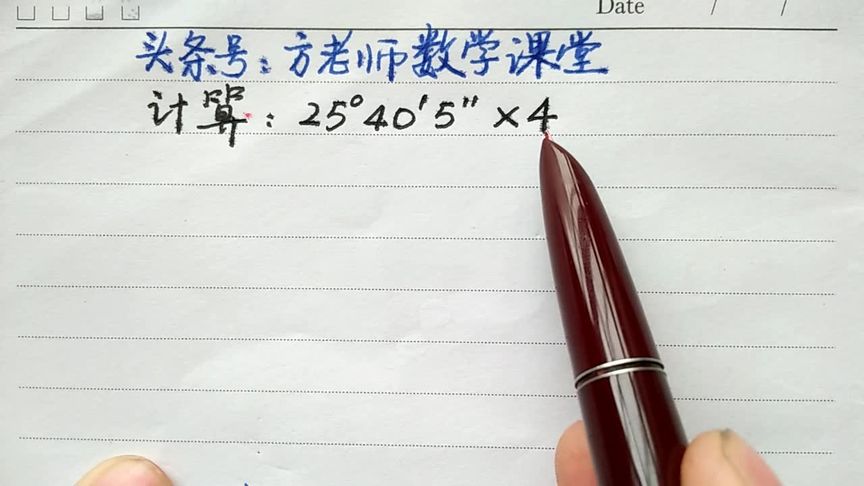 Date / /
头条号：方老师数学课堂
计算：25°40′5″×4